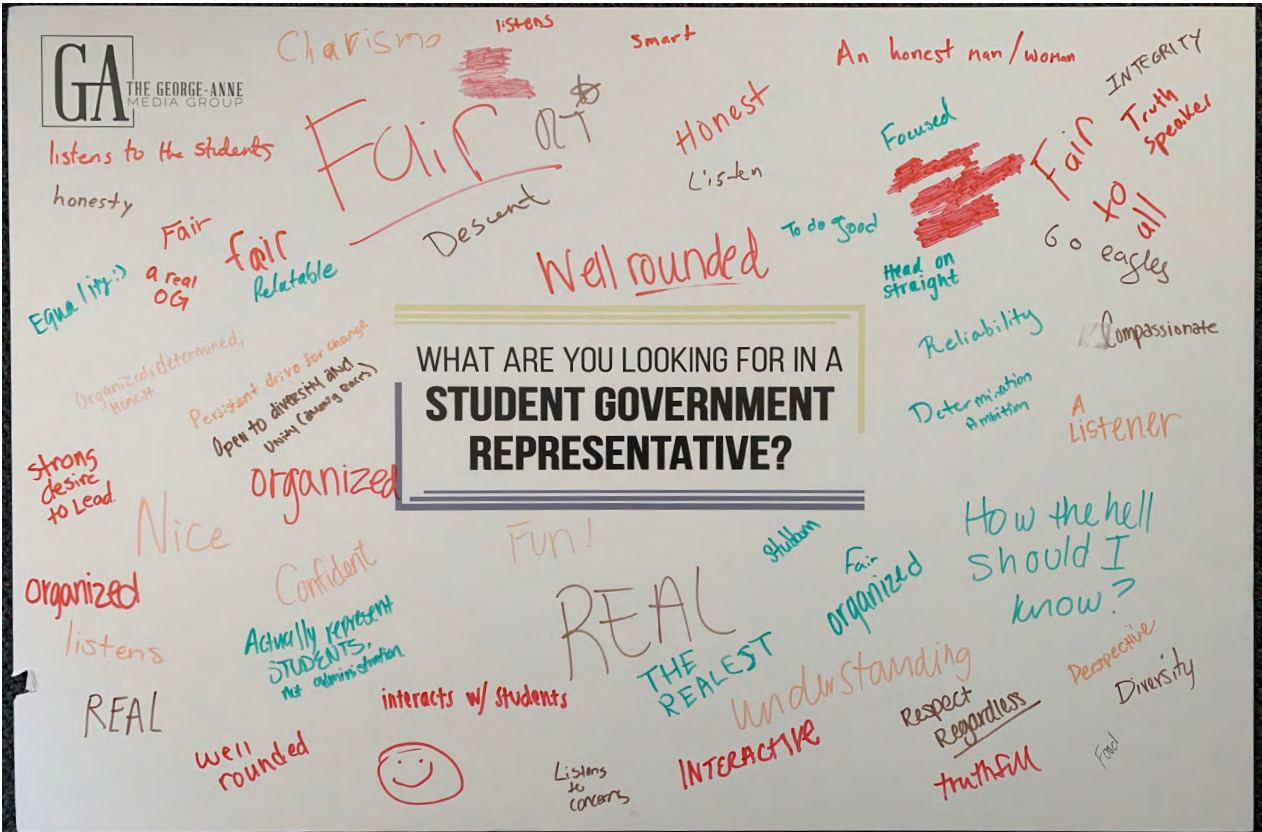 GA
THE GEORGE-ANNE
MEDIA GROUP
Charisma
listens
smart
An honest man/woman
INTEGRITY
Truth
speaker
listens to the students
honesty
Fair
Honest
Listen
Focused
Fair
to
all
Go
eagles
Fair
fair
Relatable
a real
OG
Equality:)
Descent
Well rounded
To do good
Head on
straight
Reliability
Compassionate
Organized, determined,
Honest
Persistent drive for change
Open to diversity and
Unity (among races)
WHAT ARE YOU LOOKING FOR IN A
STUDENT GOVERNMENT
REPRESENTATIVE?
Determination
Ambition
A
Listener
strong
desire
to Lead.
organized
Nice
Fun!
Stubborn
How the hell
should I
know?
organized
Confident
REAL
Fair
organized
listens
Actually represent
STUDENTS,
not administration
THE
REALEST
understanding
Perspective
Diversity
REAL
interacts w/ students
Respect
Regardless
well
rounded
Listens
to
concerns
INTERACTIVE
truthfull
Food